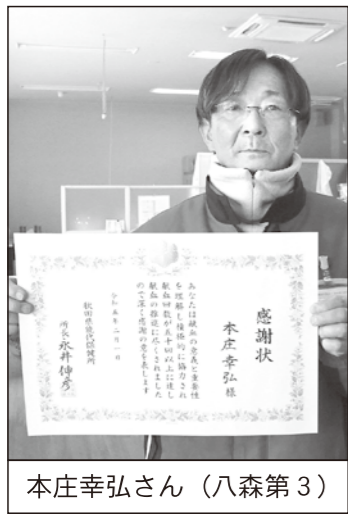 感謝状
本庄幸弘様
あなたは献血の意義と重要性
を理解し積極的に協力され
献血回数が五十回以上に達し
献血の推進に尽くされました
ので深く感謝の意を表します
令和五年二月一日
秋田県能代保健所
所長永井伸彦
本庄幸弘さん（八森第３）